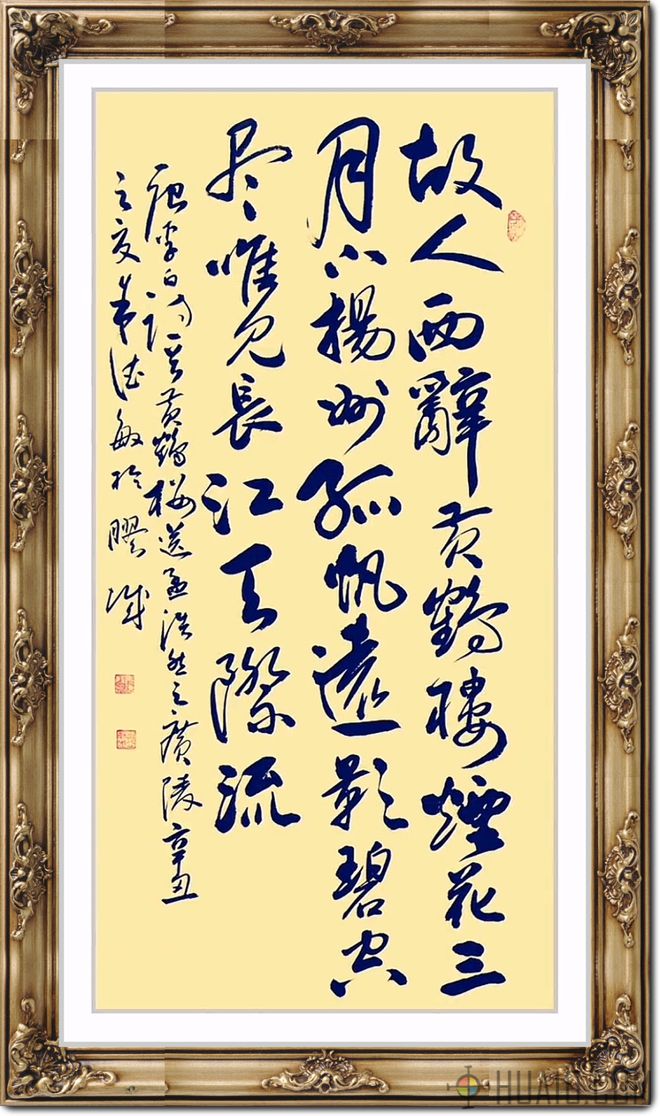 故人西辭黄鶴樓煙花三
月下揚州孤帆遠影碧空
尽唯見長江天際流
唐李白詩黄鶴楼送孟浩然之廣陵辛丑
之夏德敏於膠城